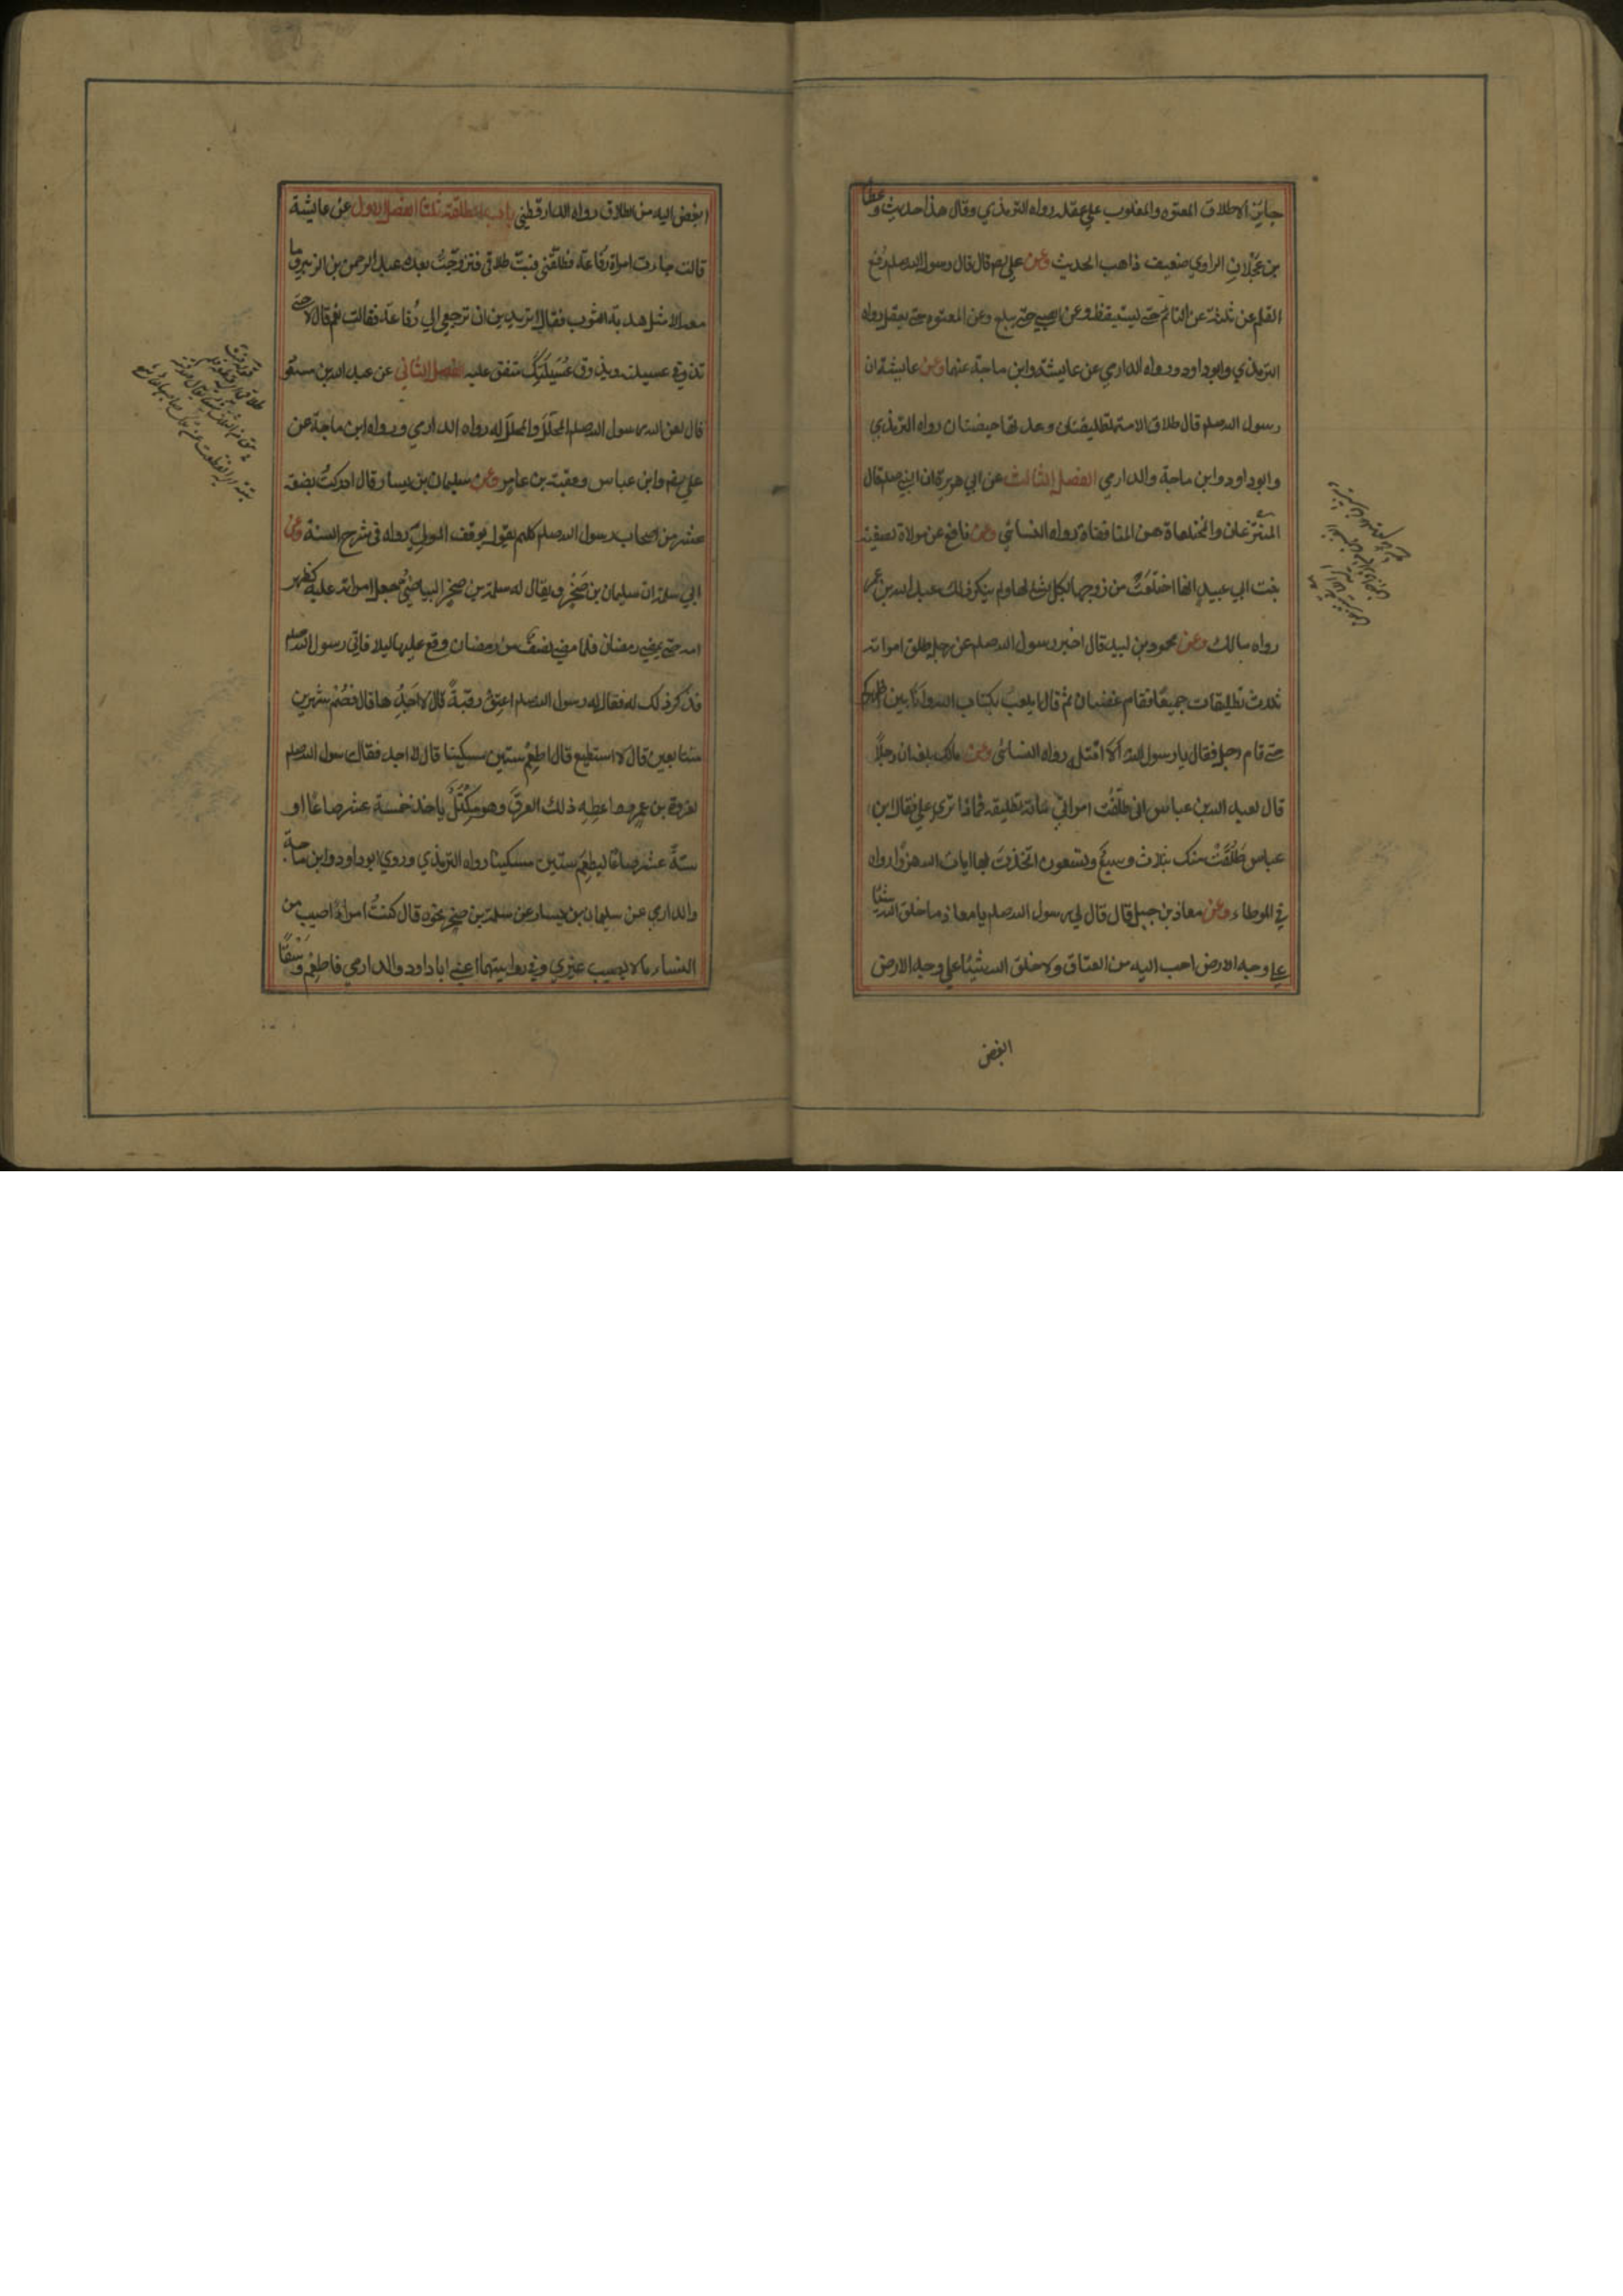 جايز الا طلاق المعتوه والمغلوب علي عقله رواه الترمذي وقال هذا حديث وعطا
بن عجلان الراوي ضعيف ذاهب الحديث وعن علي رضه قال قال رسول الله صلم رفع
القلم عن ثلثة عن النائم حتي يستيقظ وعن الصبي حتي يبلغ وعن المعتوه حتي يعقل رواه
الترمذي وابو داود ورواه الدارمي عن عايشة وابن ماجة عنهما وعن عايشة ان
رسول الله صلم قال طلاق الامة تطليقتان وعدتها حيضتان رواه الترمذي
وابو داود وابن ماجة والدارمي الفصل الثالث عن ابي هريرة ان النبي صلم قال
المنتزعات والمختلعات هن المنافقات رواه النسائي وعن نافع عن مولاة لصفية
بنت ابي عبيد انها اختلعت من زوجها بكل شئ لها ولم ينكر ذلك عبد الله بن عمر
رواه مالك وعن محمود بن لبيد قال اخبر رسول الله صلم عن رجل طلق امراته
ثلث تطليقات جميعًا فقام غضبان ثم قال ايلعب بكتاب الله وانا بين اظهركم
حتي قام رجل فقال يا رسول الله الا اقتله رواه النسائي وعن مالك بلغه ان رجلاً
قال لعبد الله بن عباس اني طلّقت امراتي مائة تطليقة فماذا تري علي فقال ابن
عباس طَلُقَتْ منك بثلاث وسبعٌ وتسعون اتخذت بها ايات الله هزوًا رواه
في الموطاء وعن معاذ بن جبل قال قال لي رسول الله صلم يا معاذ ما خلق الله شيئًا
علي وجه الارض احب اليه من العتاق ولا خلق الله شيئا علي وجه الارض
ابغض
ابغض اليه من الطلاق رواه الدارقطني باب المطلقة ثلثا الفصل الاول عن عايشة
قالت جاءت امراة رفاعة فطلقني فبتّ طلاقي فتزوجت بعده عبد الرحمن بن الزبير وما
معه الا مثل هدبة الثوب فقال اتريدين ان ترجعي الي رفاعة فقالت نعم قال لا حتي
تذوقي عسيلته ويذوق عُسَيلَتَكِ متفق عليه الفصل الثاني عن عبد الله بن مسعود
قال لعن الله رسول الله صلم المحلل والمحلل له رواه الدارمي ورواه ابن ماجة عن
علي رضه وابن عباس وعقبة بن عامر وعن سليمان بن يسار قال ادركتُ بضعة
عشر من اصحاب رسول الله صلم كلهم يقول يوقف المولي رواه في شرح السنة وعن
ابي سلمة ان سليمان بن صَخْر ويقال له سلمة بن صخر البياضي جعل امراته عليه كظهر
امه حتي يمضي رمضان فلما مضي نصف من رمضان وقع عليها ليلا فاتي رسول الله صلم
فذكر ذلك له فقال له رسول الله صلم اعتِقْ رقبةً قال لا اَجِدُ ها قال فصُمْ شهرين
متتابعين قال لا استطيع قال اطعِمْ ستين مسكينا قال لا اجد فقال رسول الله صلم
لفروة بن عمرو اعطِهِ ذلك العرق وهو مِكْتَلٌ ياخذ خمسة عشر صاعًا او
ستةَ عشر صاعًا ليطعِمَ ستين مسكينا رواه الترمذي وروي ابو داود وابن ماجة
والدارمي عن سليمان بن يسار عن سلمة بن صخر نحوه قال كنتُ امراءً اصيب من
النساء ما لا يصيب غيري وفي روايتهما اعني ابا داود والدارمي فاطعِمْ وَسْقًا